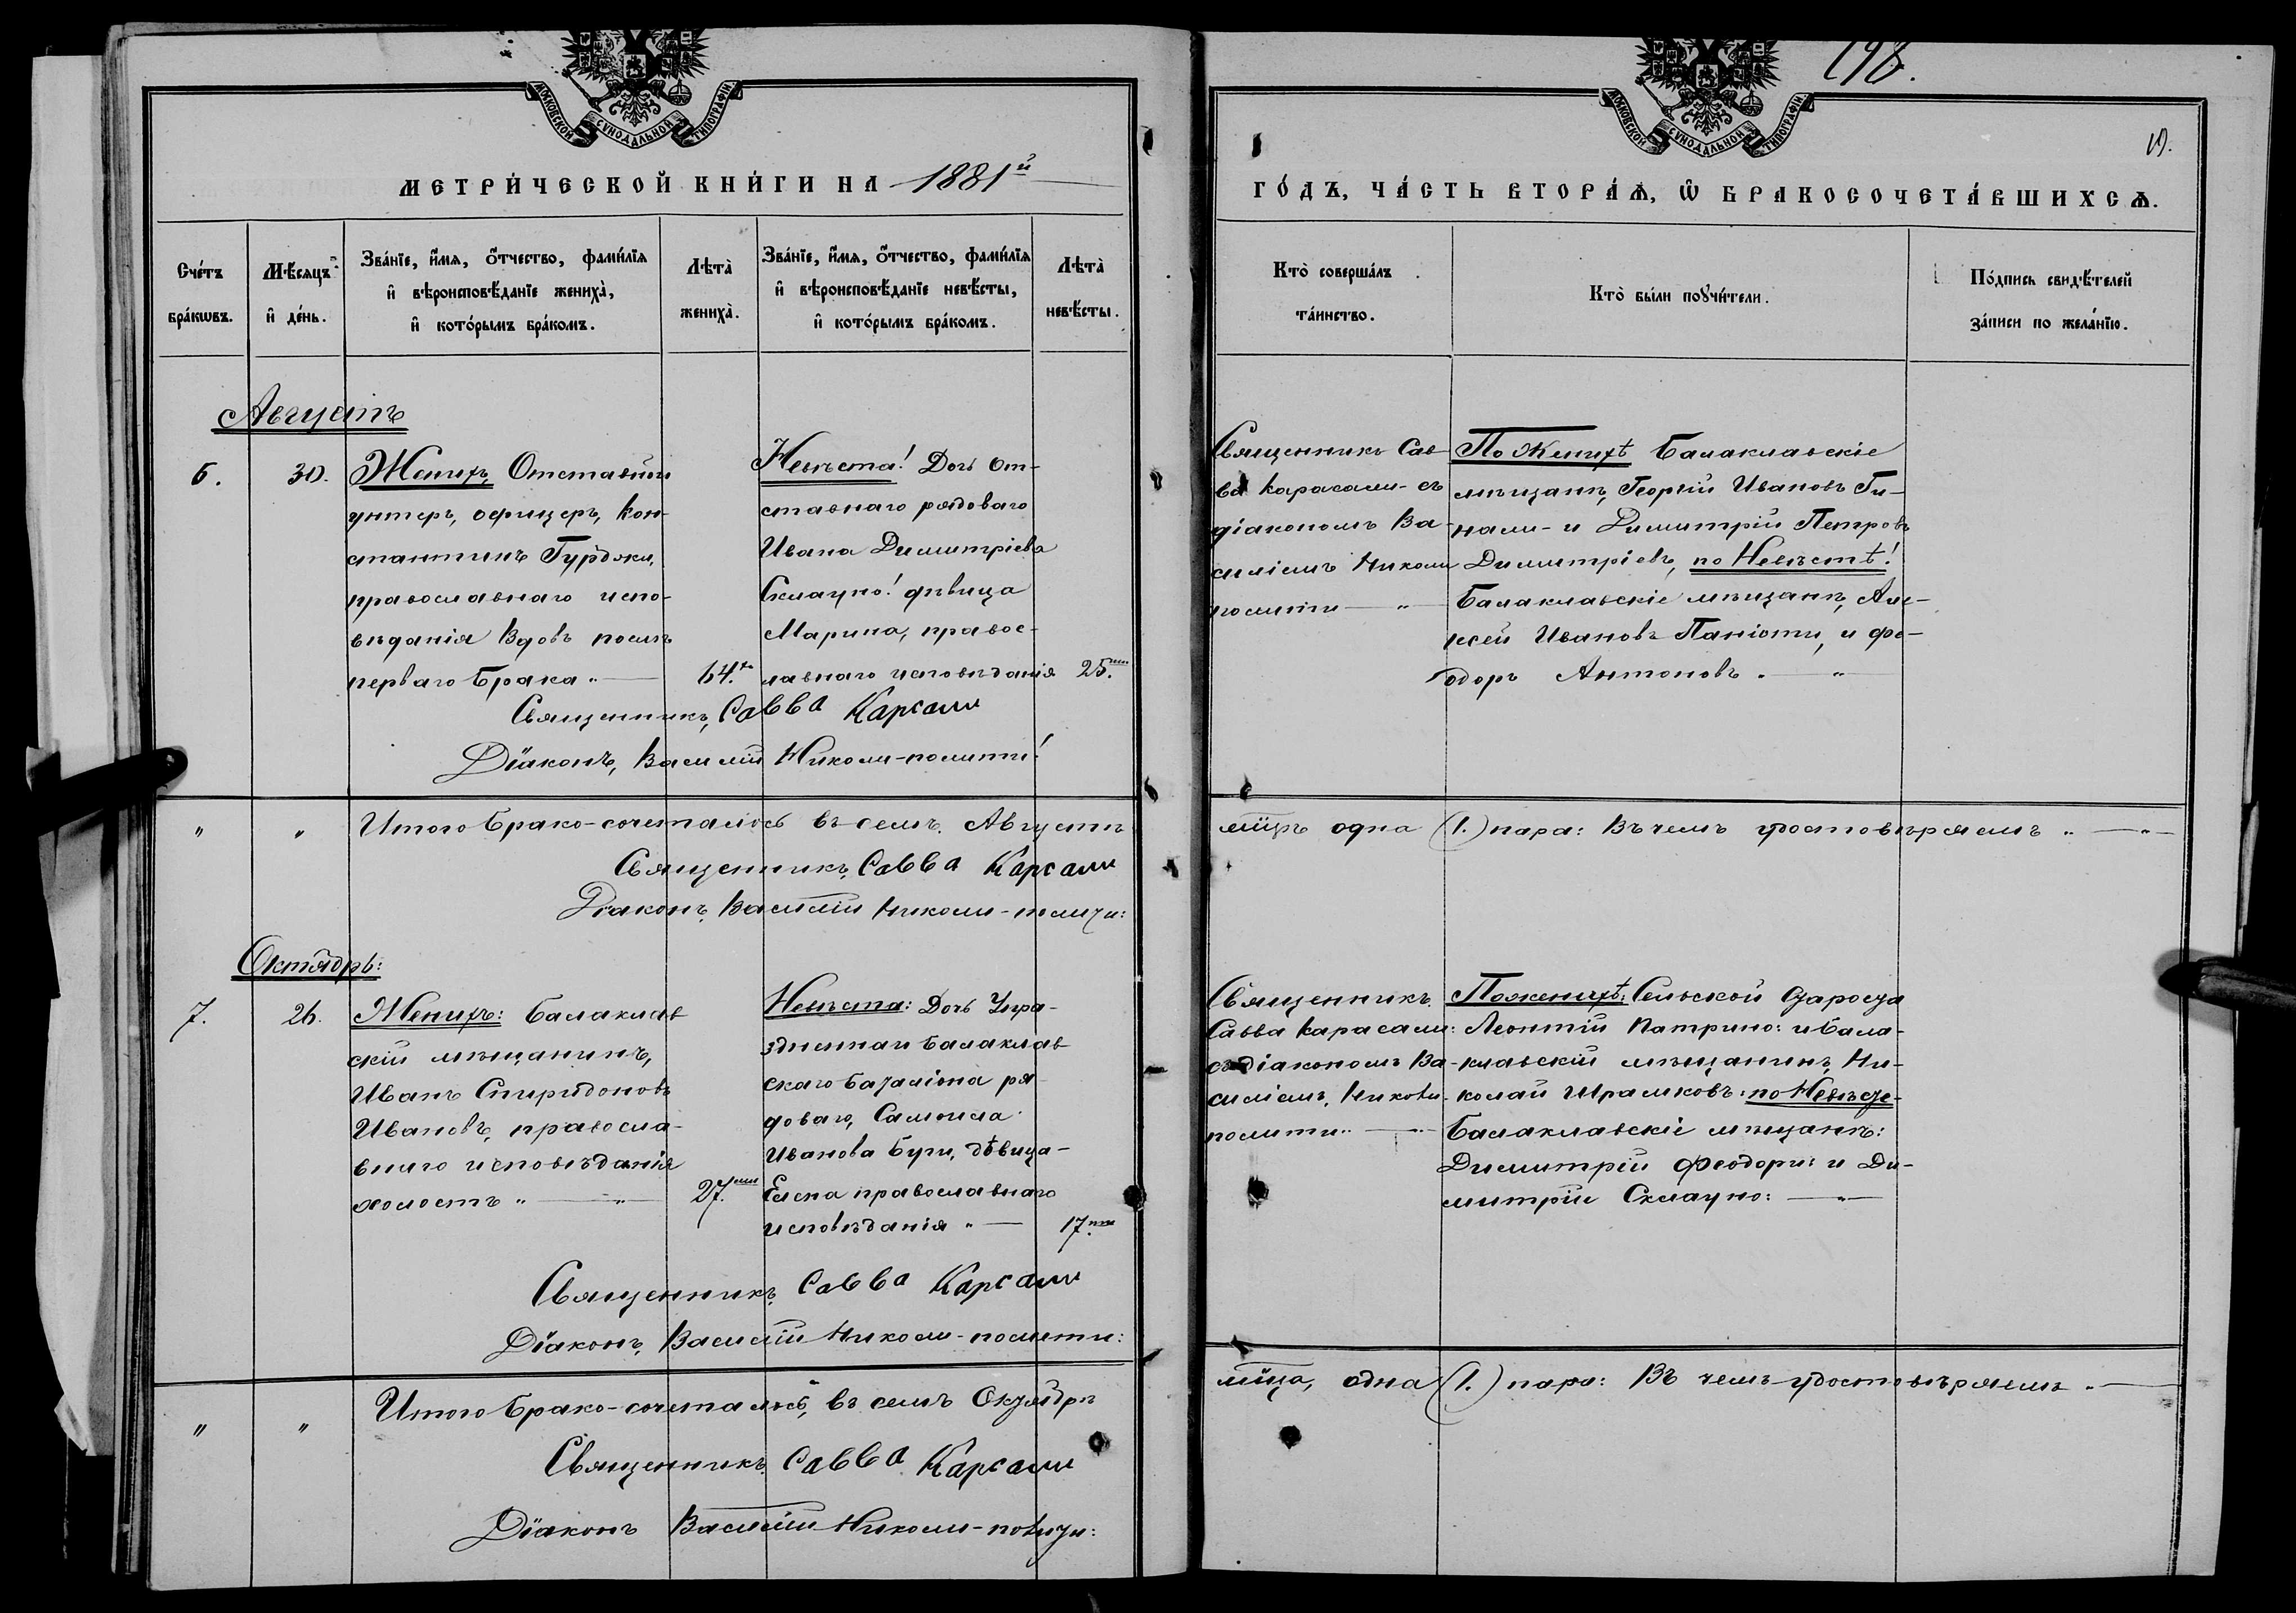 МОСКОВСКОЙ СѴНОДАЛЬНОЙ ТИПОГРАФІИ
МЕТРИ́ЧЕСКОЙ КНИ́ГИ НА 1881й
Сче́тъ бра́кωвъ.
Мѣ́сяцъ и҆ де́нь.
Зва́нїе, и҆́мѧ, ѻ҆́тчество, фами́лїѧ
и҆ вѣроисповѣ́данїе жениха̀,
и҆ кото́рымъ бра́комъ.
Лѣта̀
жениха̀.
Зва́нїе, и҆́мѧ, ѻ҆́тчество, фами́лїѧ
и҆ вѣроисповѣ́данїе невѣ́сты,
и҆ кото́рымъ бра́комъ.
Лѣта̀
невѣ́сты.
Августъ
6.
30.
Женихъ, Отставной
унтеръ, офицеръ, Кон-
стантинъ Гурджи,
православнаго испо-
вѣданія Вдовъ послѣ
перваго брака „ —
64.
Невѣста! Дочь от-
ставнаго рядоваго
Ивана Димитріева
Склауно! дѣвица
Марина, правос-
лавнаго исповѣданія
25.
Священникъ, Савва Карсали
Діаконъ, Василій Николи-полити!
„ „ Итого Брако-сочеталось въ семъ Августѣ
Священникъ, Савва Карсали
Діаконъ, Василій Николи-полити:
Октябрь:
7.
26.
Женихъ: Балаклав
скій мѣщанинъ,
Иванъ Спиридоновъ
Ивановъ, правосла-
внаго исповѣданія
холостъ „ — „
27.
Невѣста: Дочь Упра-
зднен
Балаклав
скаго баталіона ря
доваго, Самоила
Иванова Бури, дѣвица-
Елена православнаго
исповѣданія „ —
17.
Священникъ, Савва Карсали
Діаконъ, Василій Николи-полити:
„ „ Итого Брако-сочеталось, въ семъ Октябрѣ
Священникъ, Савва Карсали
Діаконъ Василій Николи-полити:
198.
МОСКОВСКОЙ СѴНОДАЛЬНОЙ ТИПОГРАФІИ
ГО́ДЪ, ЧА́СТЬ ВТОРА́Ѧ, Ѡ҆ БРАКОСОЧЕТА́ВШИХСѦ.
Кто̀ соверша́лъ
та́инство.
Кто̀ бы́ли поꙋчи́тели.
По́дпись свидѣ́телей
за́писи по жела́нїю.
Священникъ Сав-
ва Карасали - съ
діакономъ Ва-
силіемъ Николи
полити — „
По Женихѣ Балаклавскіе
мѣщанѣ, Георгій Ивановъ Ги-
нали - и Димитрій Петровъ
Димитріевъ, по Невѣстѣ!
Балаклавскіе мѣщанѣ, Але-
ксей Ивановъ Паніоти, и Фе-
одоръ Антоновъ . — „
мѣцѣ одна (1.) пара: Въ чемъ удостовѣряемъ „ — „ —
Священникъ.
Савва Карасали:
съ діакономъ Ва-
силіемъ, Николи-
полити „ — „
По женихѣ: Сельской Староста
Леонтій Патрино: и Бала-
клавскій мѣщанинъ, Ни-
колай Храмковъ: по Невѣстѣ-
Балаклавскіе мѣщанѣ:
Димитрій Феодори: и Ди-
митрій Склауно: — „ —
мѣца, одна (1.) пара: Въ чемъ удостовѣряемъ „ —